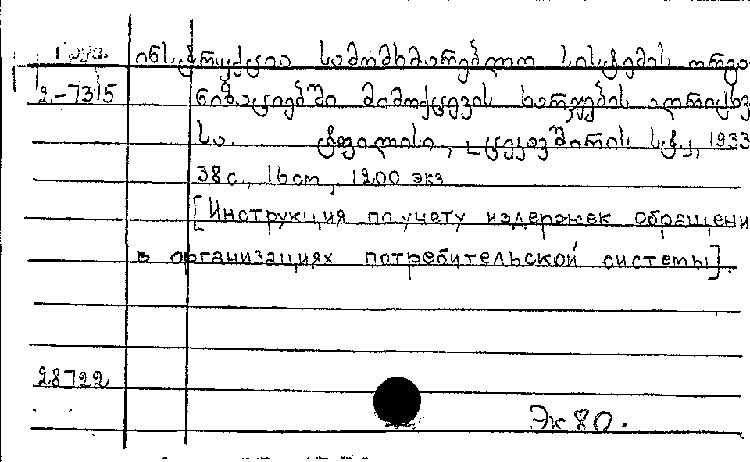 ინსტრუქცია სამომხმარებლო სისტემის ორგა
2-7315 ნიზაციებში მიმოქცევის ხარჯების აღრიცხვ
სა. ტფილისი, ცეკავშირის სტ., 1933
38 с., 16 см, 1200 экз
[Инструкция по учету издержек обращени
в организациях потребительской системы].
28722
Эк 80.